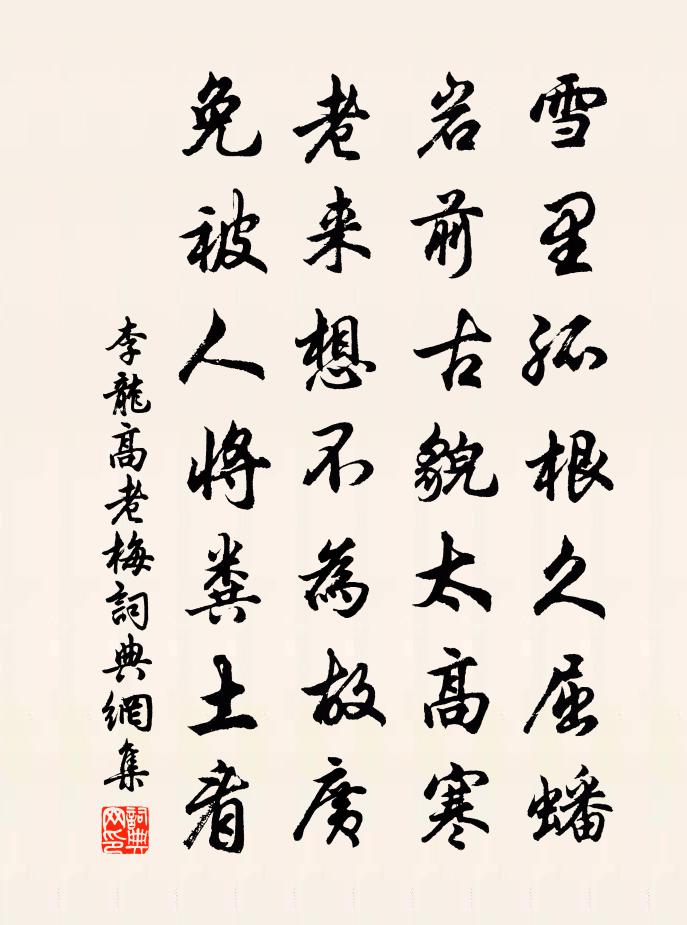 雪里孤根久屈蟠
岩前古貌太高寒
老来想不為故廣
免被人将糞土看
李龍高老梅詞典網集
詞典网印